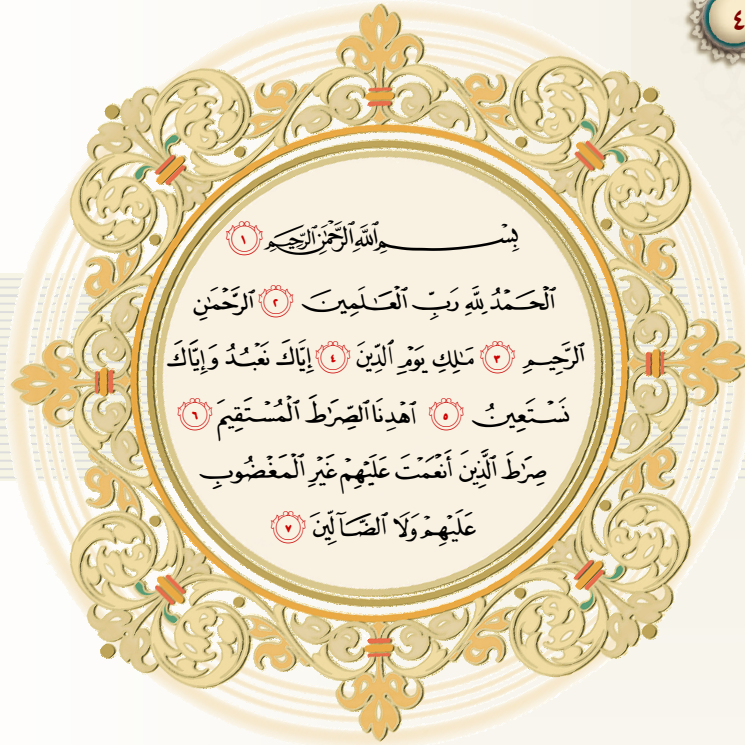 ٤
بِسْمِ ٱللَّهِ ٱلرَّحْمَٰنِ ٱلرَّحِيمِ ١
ٱلْحَمْدُ لِلَّهِ رَبِّ ٱلْعَٰلَمِينَ ٢ ٱلرَّحْمَٰنِ
ٱلرَّحِيمِ ٣ مَٰلِكِ يَوْمِ ٱلدِّينِ ٤ إِيَّاكَ نَعْبُدُ وَإِيَّاكَ
نَسْتَعِينُ ٥ ٱهْدِنَا ٱلصِّرَٰطَ ٱلْمُسْتَقِيمَ ٦
صِرَٰطَ ٱلَّذِينَ أَنْعَمْتَ عَلَيْهِمْ غَيْرِ ٱلْمَغْضُوبِ
عَلَيْهِمْ وَلَا ٱلضَّآلِّينَ ٧